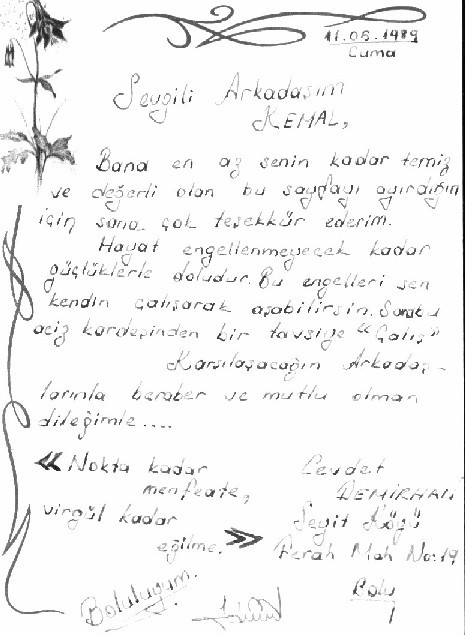 11.06.1989
Cuma
Sevgili Arkadaşım
KEMAL,
Bana en az senin kadar temiz
ve değerli olan bu sayfayı ayırdığın
için sana çok teşekkür ederim.
Hayat engellenmeyecek kadar
güçlüklerle doludur. Bu engelleri sen
kendin çalışarak aşabilirsin. Sana bu
aciz kardeşinden bir tavsiye "Çalış"
Karşılaşacağın Arkadaş-
larınla beraber ve mutlu olman
dileğimle....
« Nokta kadar
menfeate,
virgül kadar
eğilme. »
Cevdet
DEMİRHAN
Seyit Köyü
Ferah Mah No:19
Bolu
Boluluyum.